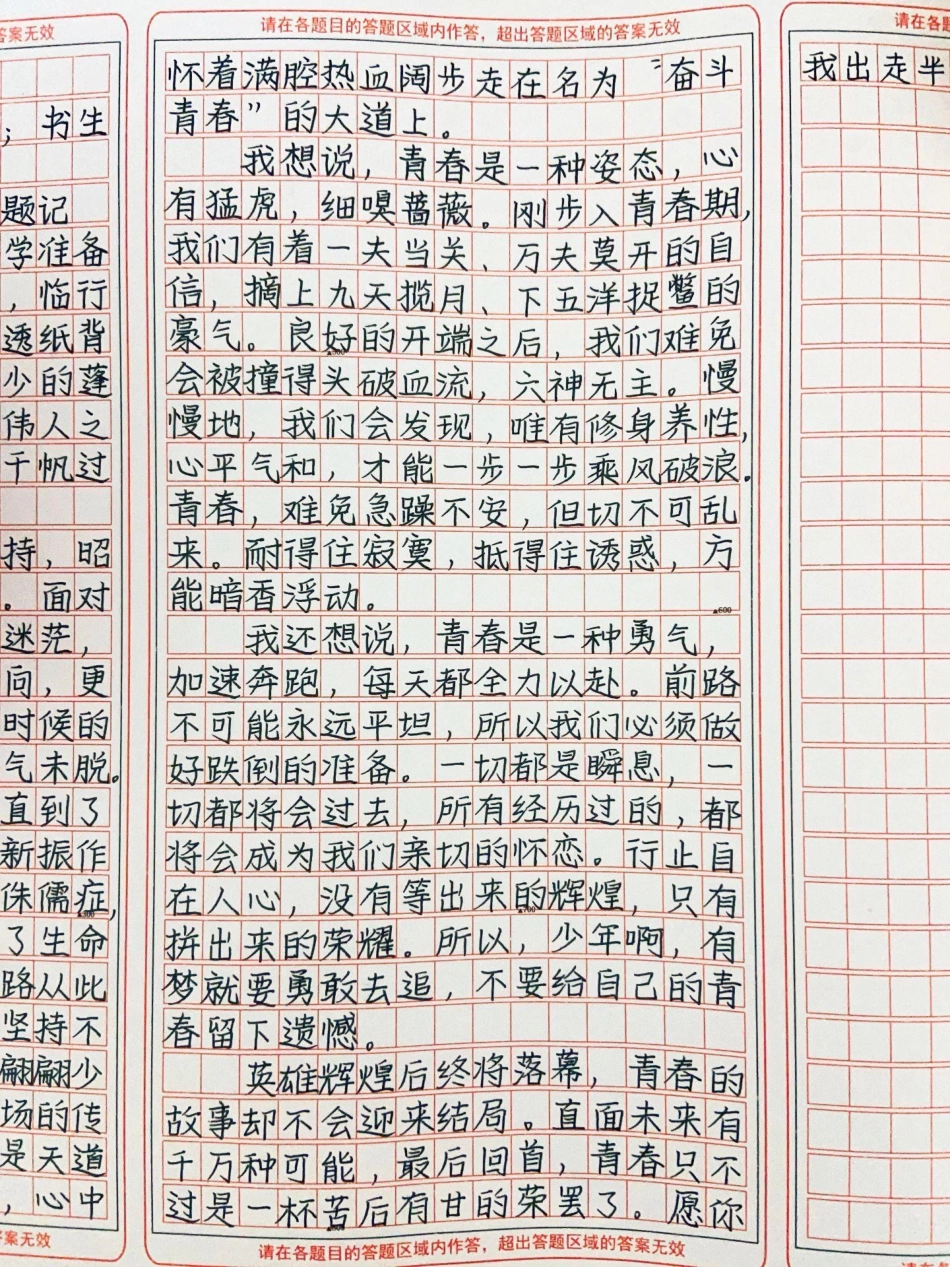 答案无效
；书生
题记
学准备
，临行
透纸背
少的蓬
伟人之
千帆过
持，昭
。面对
迷茫，
向，更
时候的
气未脱。
直到了
新振作
侏儒症，
了生命
路从此
坚持不
翩翩少
场的传
是天道
，心中
答案无效
请在各题目的答题区域内作答，超出答题区域的答案无效
怀着满腔热血阔步走在名为“奋斗
青春”的大道上。
我想说，青春是一种姿态，心
有猛虎，细嗅蔷薇。刚步入青春期，
我们有着一夫当关、万夫莫开的自
信，摘上九天揽月、下五洋捉鳖的
豪气。良好的开端之后，我们难免
会被撞得头破血流，六神无主。慢
慢地，我们会发现，唯有修身养性，
心平气和，才能一步一步乘风破浪。
青春，难免急躁不安，但切不可乱
来。耐得住寂寞，抵得住诱惑，方
能暗香浮动。
▲600
我还想说，青春是一种勇气，
加速奔跑，每天都全力以赴。前路
不可能永远平坦，所以我们必须做
好跌倒的准备。一切都是瞬息，一
切都将会过去，所有经历过的，都
将会成为我们亲切的怀恋。行止自
在人心，没有等出来的辉煌，只有
▲700
拼出来的荣耀。所以，少年啊，有
梦就要勇敢去追，不要给自己的青
春留下遗憾。
英雄辉煌后终将落幕，青春的
故事却不会迎来结局。直面未来有
千万种可能，最后回首，青春只不
过是一杯苦后有甘的荣罢了。愿你
请在各题目的答题区域内作答，超出答题区域的答案无效
请在各题
我出走半